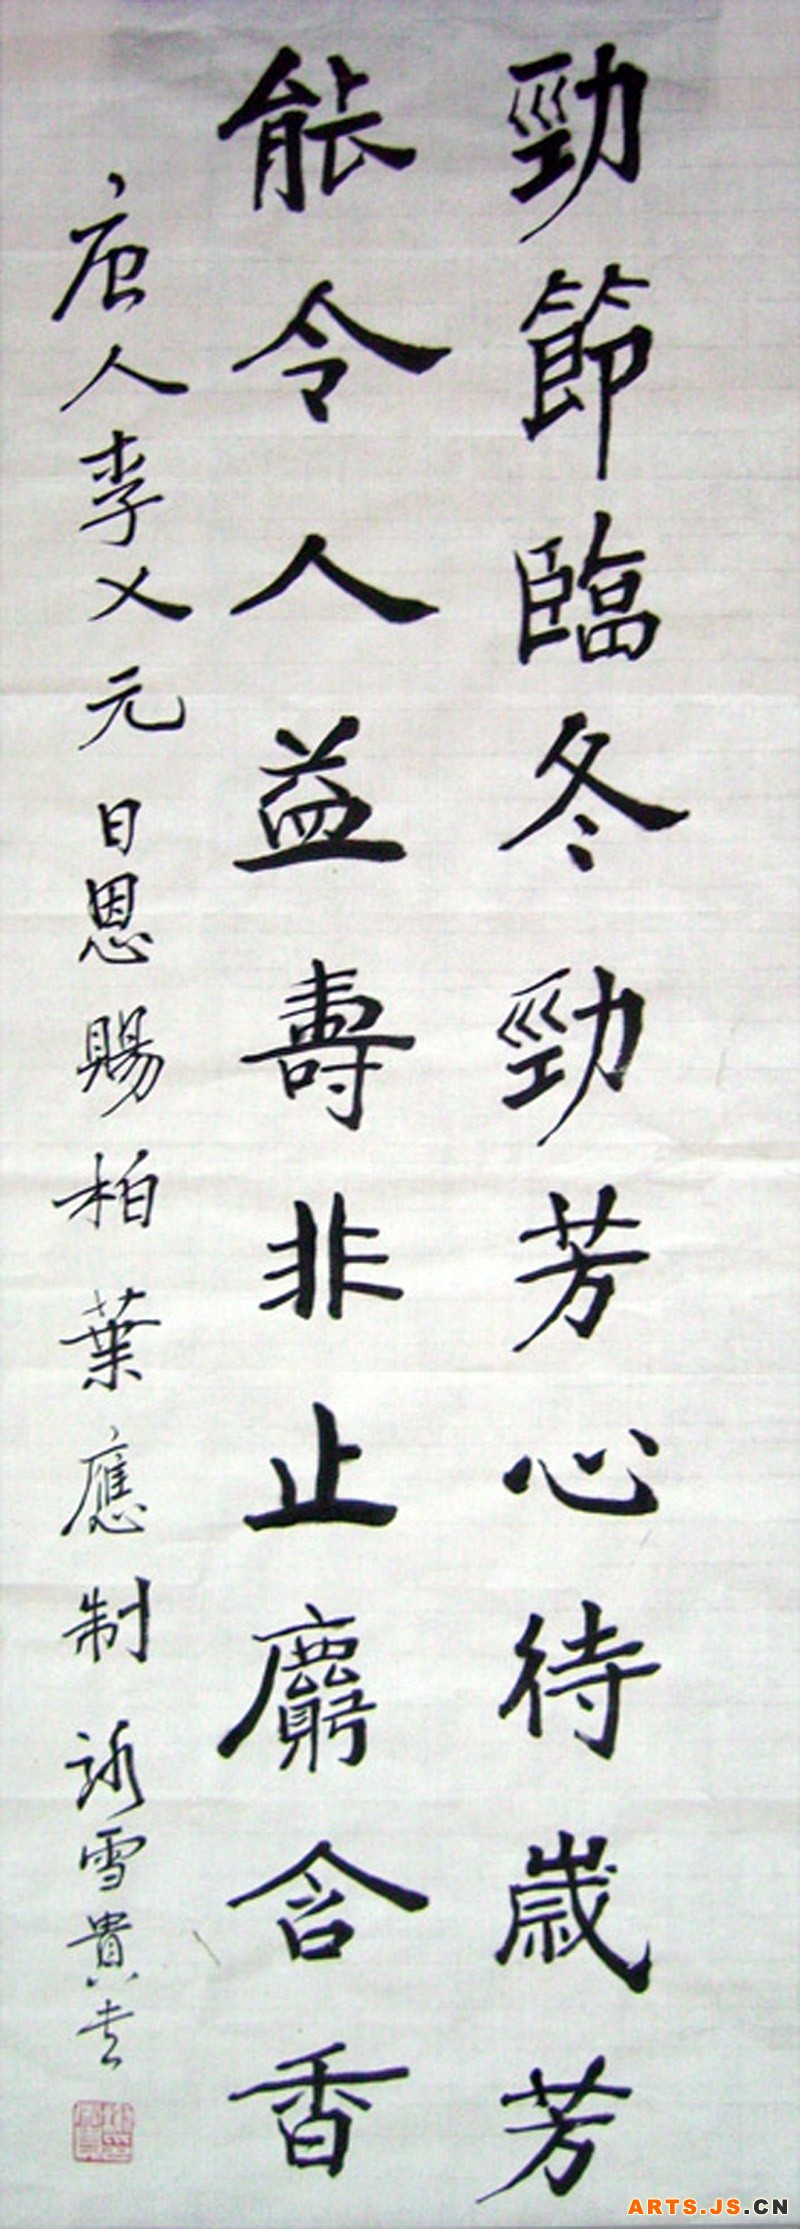 勁節臨冬勁芳心待歲芳
能令人益壽非止麝含香
唐人李乂元日恩賜柏葉應制 詠雪貴
ARTS.JS.CN